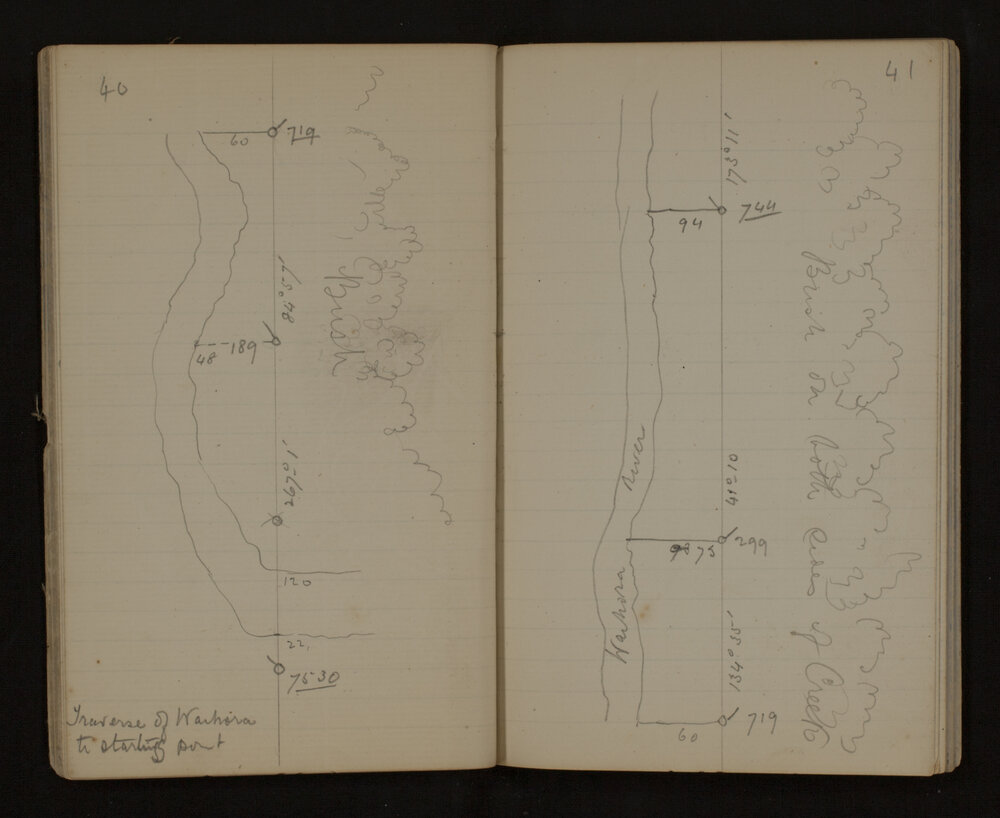 40
60 719
84°57'
48 189
267°1'
120
22
7530
Bush
Traverse of Waihora
to starting point
41
173°11'
94 744
41°10
75 299
134°35'
60 719
Waihora River
Bush on both sides of Creek